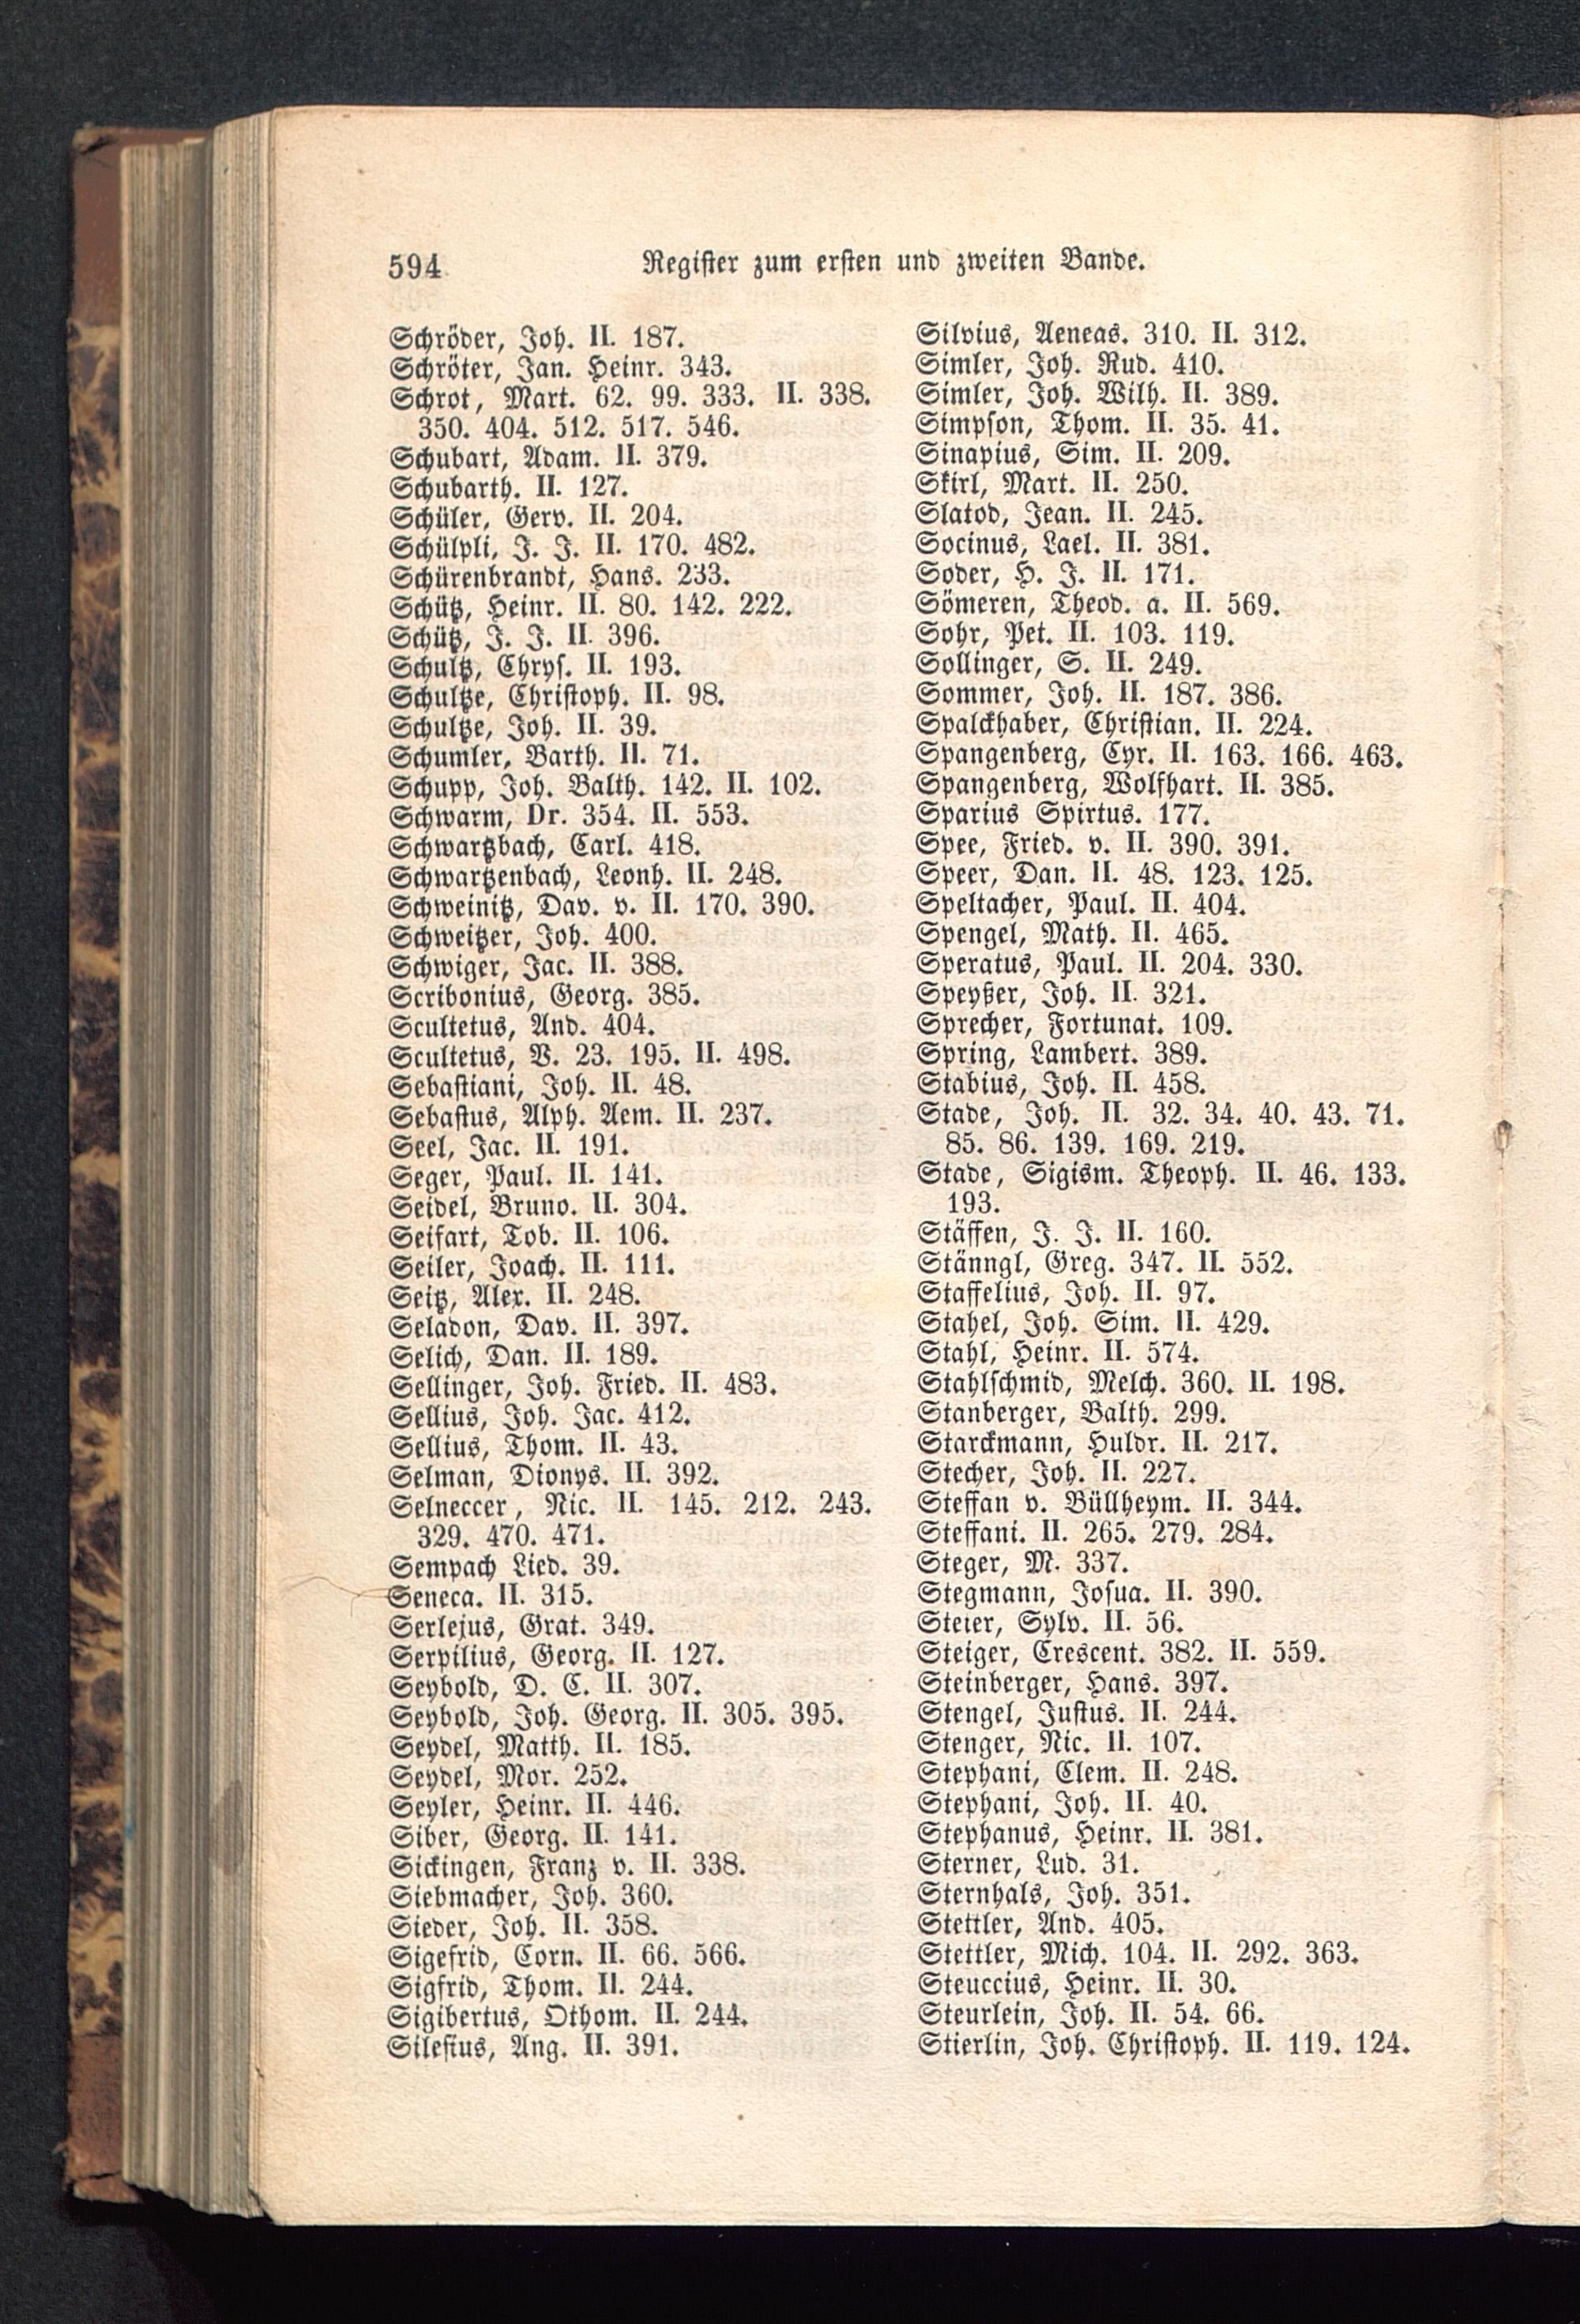 594
Register zum ersten und zweiten Bande.
Schröder, Joh. II. 187.
Schröter, Jan. Heinr. 343.
Schrot, Mart. 62. 99. 333. II. 338.
350. 404. 512. 517. 546.
Schubart, Adam. II. 379.
Schubarth. II. 127.
Schüler, Gerv. II. 204.
Schülpli, J. J. II. 170. 482.
Schürenbrandt, Hans. 233.
Schütz, Heinr. II. 80. 142. 222.
Schütz, J. J. II. 396.
Schultz, Chrys. II. 193.
Schultze, Christoph. II. 98.
Schultze, Joh. II. 39.
Schumler, Barth. II. 71.
Schupp, Joh. Balth. 142. II. 102.
Schwarm, Dr. 354. II. 553.
Schwartzbach, Carl. 418.
Schwartzenbach, Leonh. II. 248.
Schweinitz, Dav. v. II. 170. 390.
Schweitzer, Joh. 400.
Schwiger, Jac. II. 388.
Scribonius, Georg. 385.
Scultetus, And. 404.
Scultetus, V. 23. 195. II. 498.
Sebastiani, Joh. II. 48.
Sebastus, Alph. Aem. II. 237.
Seel, Jac. II. 191.
Seger, Paul. II. 141.
Seidel, Bruno. II. 304.
Seifart, Tob. II. 106.
Seiler, Joach. II. 111.
Seitz, Alex. II. 248.
Seladon, Dav. II. 397.
Selich, Dan. II. 189.
Sellinger, Joh. Fried. II. 483.
Sellius, Joh. Jac. 412.
Sellius, Thom. II. 43.
Selman, Dionys. II. 392.
Selneccer, Nic. II. 145. 212. 243.
329. 470. 471.
Sempach Lied. 39.
Seneca. II. 315.
Serlejus, Grat. 349.
Serpilius, Georg. II. 127.
Seybold, D. C. II. 307.
Seybold, Joh. Georg. II. 305. 395.
Seydel, Matth. II. 185.
Seydel, Mor. 252.
Seyler, Heinr. II. 446.
Siber, Georg. II. 141.
Sickingen, Franz v. II. 338.
Siebmacher, Joh. 360.
Sieder, Joh. II. 358.
Sigefrid, Corn. II. 66. 566.
Sigfrid, Thom. II. 244.
Sigibertus, Othom. II. 244.
Silesius, Ang. II. 391.
Silvius, Aeneas. 310. II. 312.
Simler, Joh. Rud. 410.
Simler, Joh. Wilh. II. 389.
Simpson, Thom. II. 35. 41.
Sinapius, Sim. II. 209.
Skirl, Mart. II. 250.
Slatod, Jean. II. 245.
Socinus, Lael. II. 381.
Soder, H. J. II. 171.
Sömeren, Theod. a. II. 569.
Sohr, Pet. II. 103. 119.
Sollinger, S. II. 249.
Sommer, Joh. II. 187. 386.
Spalckhaber, Christian. II. 224.
Spangenberg, Cyr. II. 163. 166. 463.
Spangenberg, Wolfhart. II. 385.
Sparius Spirtus. 177.
Spee, Fried. v. II. 390. 391.
Speer, Dan. II. 48. 123. 125.
Speltacher, Paul. II. 404.
Spengel, Math. II. 465.
Speratus, Paul. II. 204. 330.
Speyßer, Joh. II. 321.
Sprecher, Fortunat. 109.
Spring, Lambert. 389.
Stabius, Joh. II. 458.
Stade, Joh. II. 32. 34. 40. 43. 71.
85. 86. 139. 169. 219.
Stade, Sigism. Theoph. II. 46. 133.
193.
Stäffen, J. J. II. 160.
Stänngl, Greg. 347. II. 552.
Staffelius, Joh. II. 97.
Stahel, Joh. Sim. II. 429.
Stahl, Heinr. II. 574.
Stahlschmid, Melch. 360. II. 198.
Stanberger, Balth. 299.
Starckmann, Huldr. II. 217.
Stecher, Joh. II. 227.
Steffan v. Büllheym. II. 344.
Steffani. II. 265. 279. 284.
Steger, M. 337.
Stegmann, Josua. II. 390.
Steier, Sylv. II. 56.
Steiger, Crescent. 382. II. 559.
Steinberger, Hans. 397.
Stengel, Justus. II. 244.
Stenger, Nic. II. 107.
Stephani, Clem. II. 248.
Stephani, Joh. II. 40.
Stephanus, Heinr. II. 381.
Sterner, Lud. 31.
Sternhals, Joh. 351.
Stettler, And. 405.
Stettler, Mich. 104. II. 292. 363.
Steuccius, Heinr. II. 30.
Steurlein, Joh. II. 54. 66.
Stierlin, Joh. Christoph. II. 119. 124.